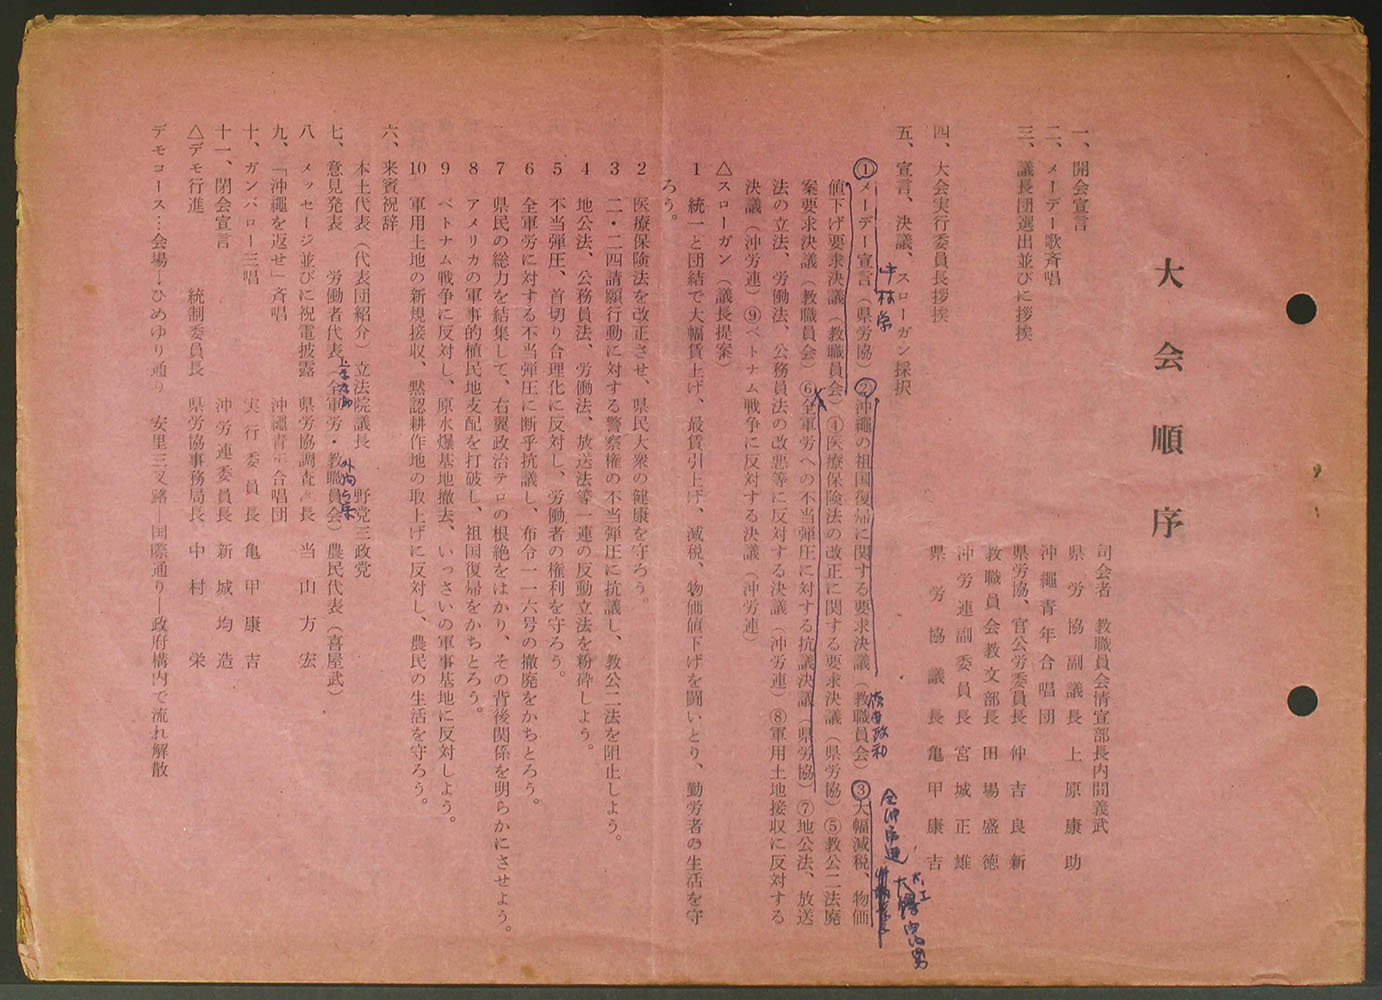 大会順序
司会者　教職員会情宣部長内間義武
一、開会宣言　県労協副議長上原康助
二、メーデー歌斉唱　沖縄青年合唱団
三、議長団選出並びに挨拶　県労協、官公労委員長仲吉良新
教職員会教文部長田場盛徳
沖労連副委員長宮城正雄
四、大会実行委員長挨拶　県労協議長亀甲康吉
五、宣言、決議、スローガン採択
①メーデー宣言（県労協）②沖縄の祖国復帰に関する要求決議（教職員会）③大幅減税、物価
値下げ要求決議（教職員会）④医療保険法の改正に関する要求決議（県労協）⑤教公二法廃
案要求決議（教職員会）⑥全軍労への不当弾圧に対する抗議決議（県労協）⑦地公法、放送
法の立法、労働法、公務員法の改悪等に反対する決議（沖労連）⑧軍用土地接収に反対する
決議（沖労連）⑨ベトナム戦争に反対する決議（沖労連）
△スローガン（議長提案）
1　統一と団結で大幅賃上げ、最賃引上げ、減税、物価値下げを闘いとり、勤労者の生活を守
ろう。
2　医療保険法を改正させ、県民大衆の健康を守ろう。
3　二・二四請願行動に対する警察権の不当弾圧に抗議し、教公二法を阻止しよう。
4　地公法、公務員法、労働法、放送法等一連の反動立法を粉砕しよう。
5　不当弾圧、首切り合理化に反対し、労働者の権利を守ろう。
6　全軍労に対する不当弾圧に断乎抗議し、布令一一六号の撤廃をかちとろう。
7　県民の総力を結集して、右翼政治テロの根絶をはかり、その背後関係を明らかにさせよう。
8　アメリカの軍事的植民地支配を打破し、祖国復帰をかちとろう。
9　ベトナム戦争に反対し、原水爆基地撤去、いっさいの軍事基地に反対しよう。
10　軍用土地の新規接収、黙認耕作地の取上げに反対し、農民の生活を守ろう。
六、来賓祝辞
本土代表（代表団紹介）立法院議長　野党三政党
七、意見発表　労働者代表（全軍労・教職員会）農民代表（喜屋武）
八　メッセージ並びに祝電披露　県労協調査部長　当山方宏
九、「沖縄を返せ」斉唱　沖縄青年合唱団
十、ガンバロー三唱　実行委員長　亀甲康吉
十一、閉会宣言　沖労連委員長　新城均造
△デモ行進　統制委員長　県労協事務局長　中村栄
デモコース…会場→ひめゆり通り　安里三叉路―国際通り―政府構内で流れ解散
中林栄
政和
大工